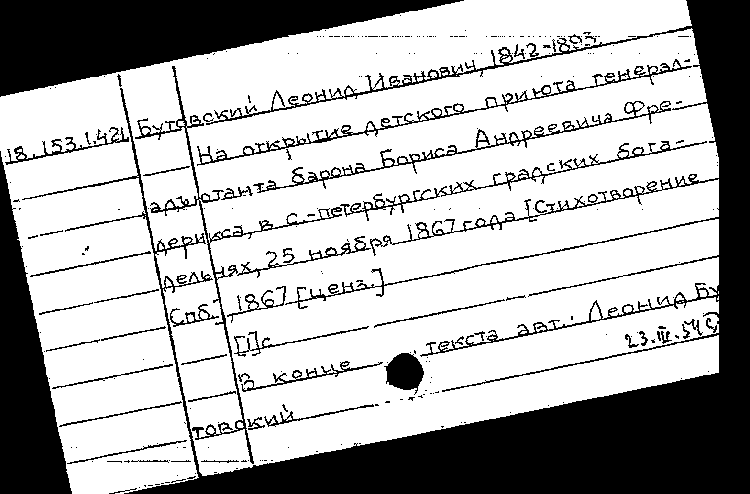 18.153.1.421. Бутовский Леонид Иванович, 1842-1893.
На открытие детского приюта генерал-
адъютанта барона Бориса Андреевича Фре-
дерикса, в С.-петербургских градских бога-
дельнях, 25 ноября 1867 года [Стихотворение
Спб.], 1867 [ценз.]
[1]с
В конце текста авт.: Леонид Бу
товский
23.III.54